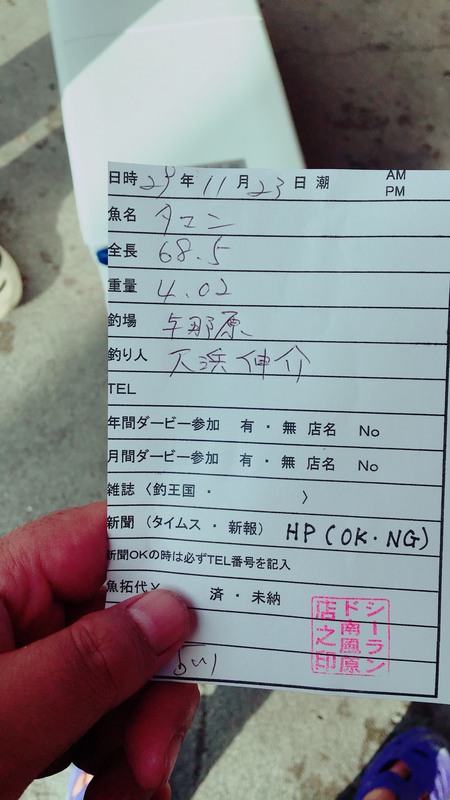 日時 29年 11月 23日 潮 AM PM
魚名 タマン
全長 68.5
重量 4.02
釣場 与那原
釣り人 大浜 伸介
TEL
年間ダービー参加 有・無 店名 No
月間ダービー参加 有・無 店名 No
雑誌〈釣王国・ 〉
新聞（タイムス・新報） HP(OK・NG)
新聞OKの時は必ずTEL番号を記入
魚拓代¥ 済・未納
シーランド南風原店之印